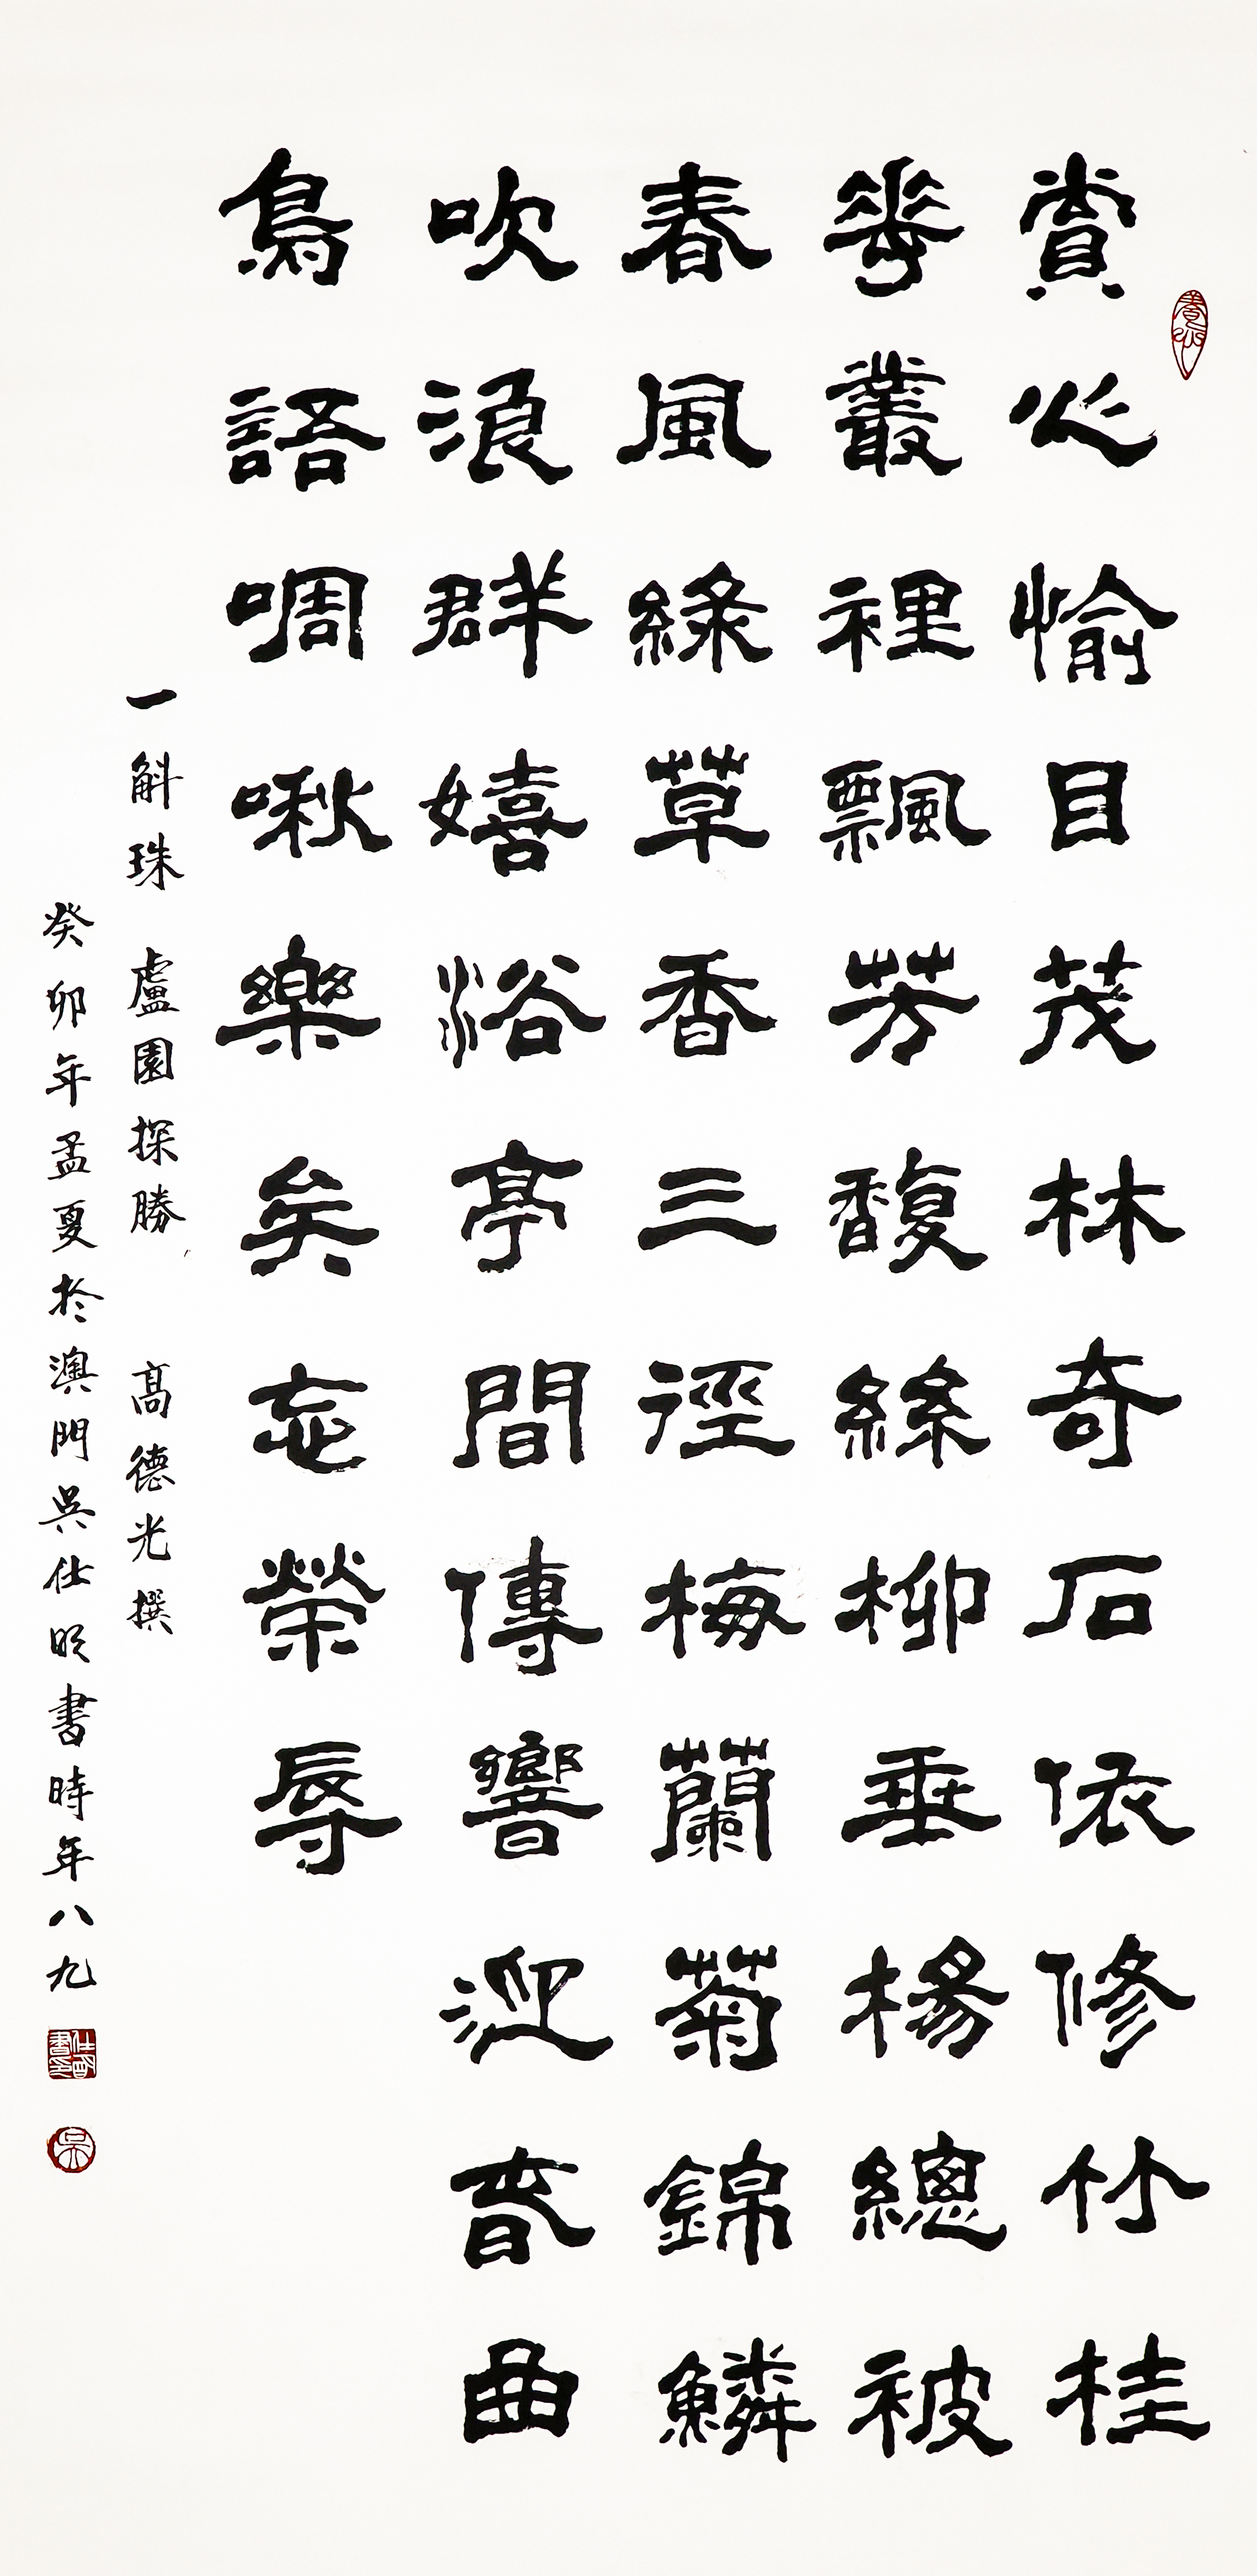 賞心愉目茂林奇石依修竹桂
花叢裡飄芳馥絲柳垂楊總被
春風綠草香三徑梅蘭菊錦鱗
吹浪群嬉浴亭間傳響迎春曲
鳥語啁啾樂矣忘榮辱
一斛珠 盧園探勝 高德光撰
癸卯年孟夏於澳門吳仕明書時年八九